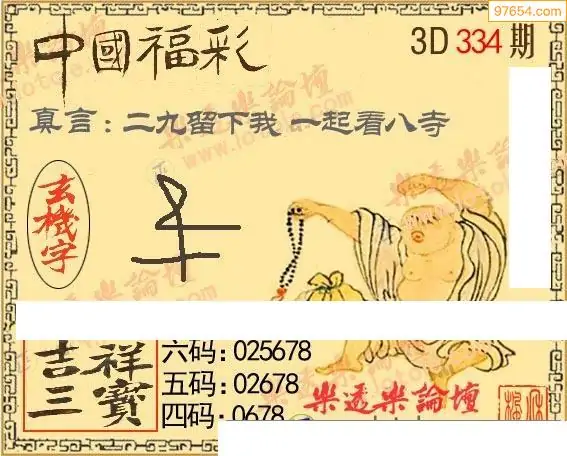 97654.com
中國福彩
3D 334 期
真言：二九留下我 一起看八寺
玄機字
吉祥三寶
六码：025678
五码：02678
四码：0678
樂透樂論壇